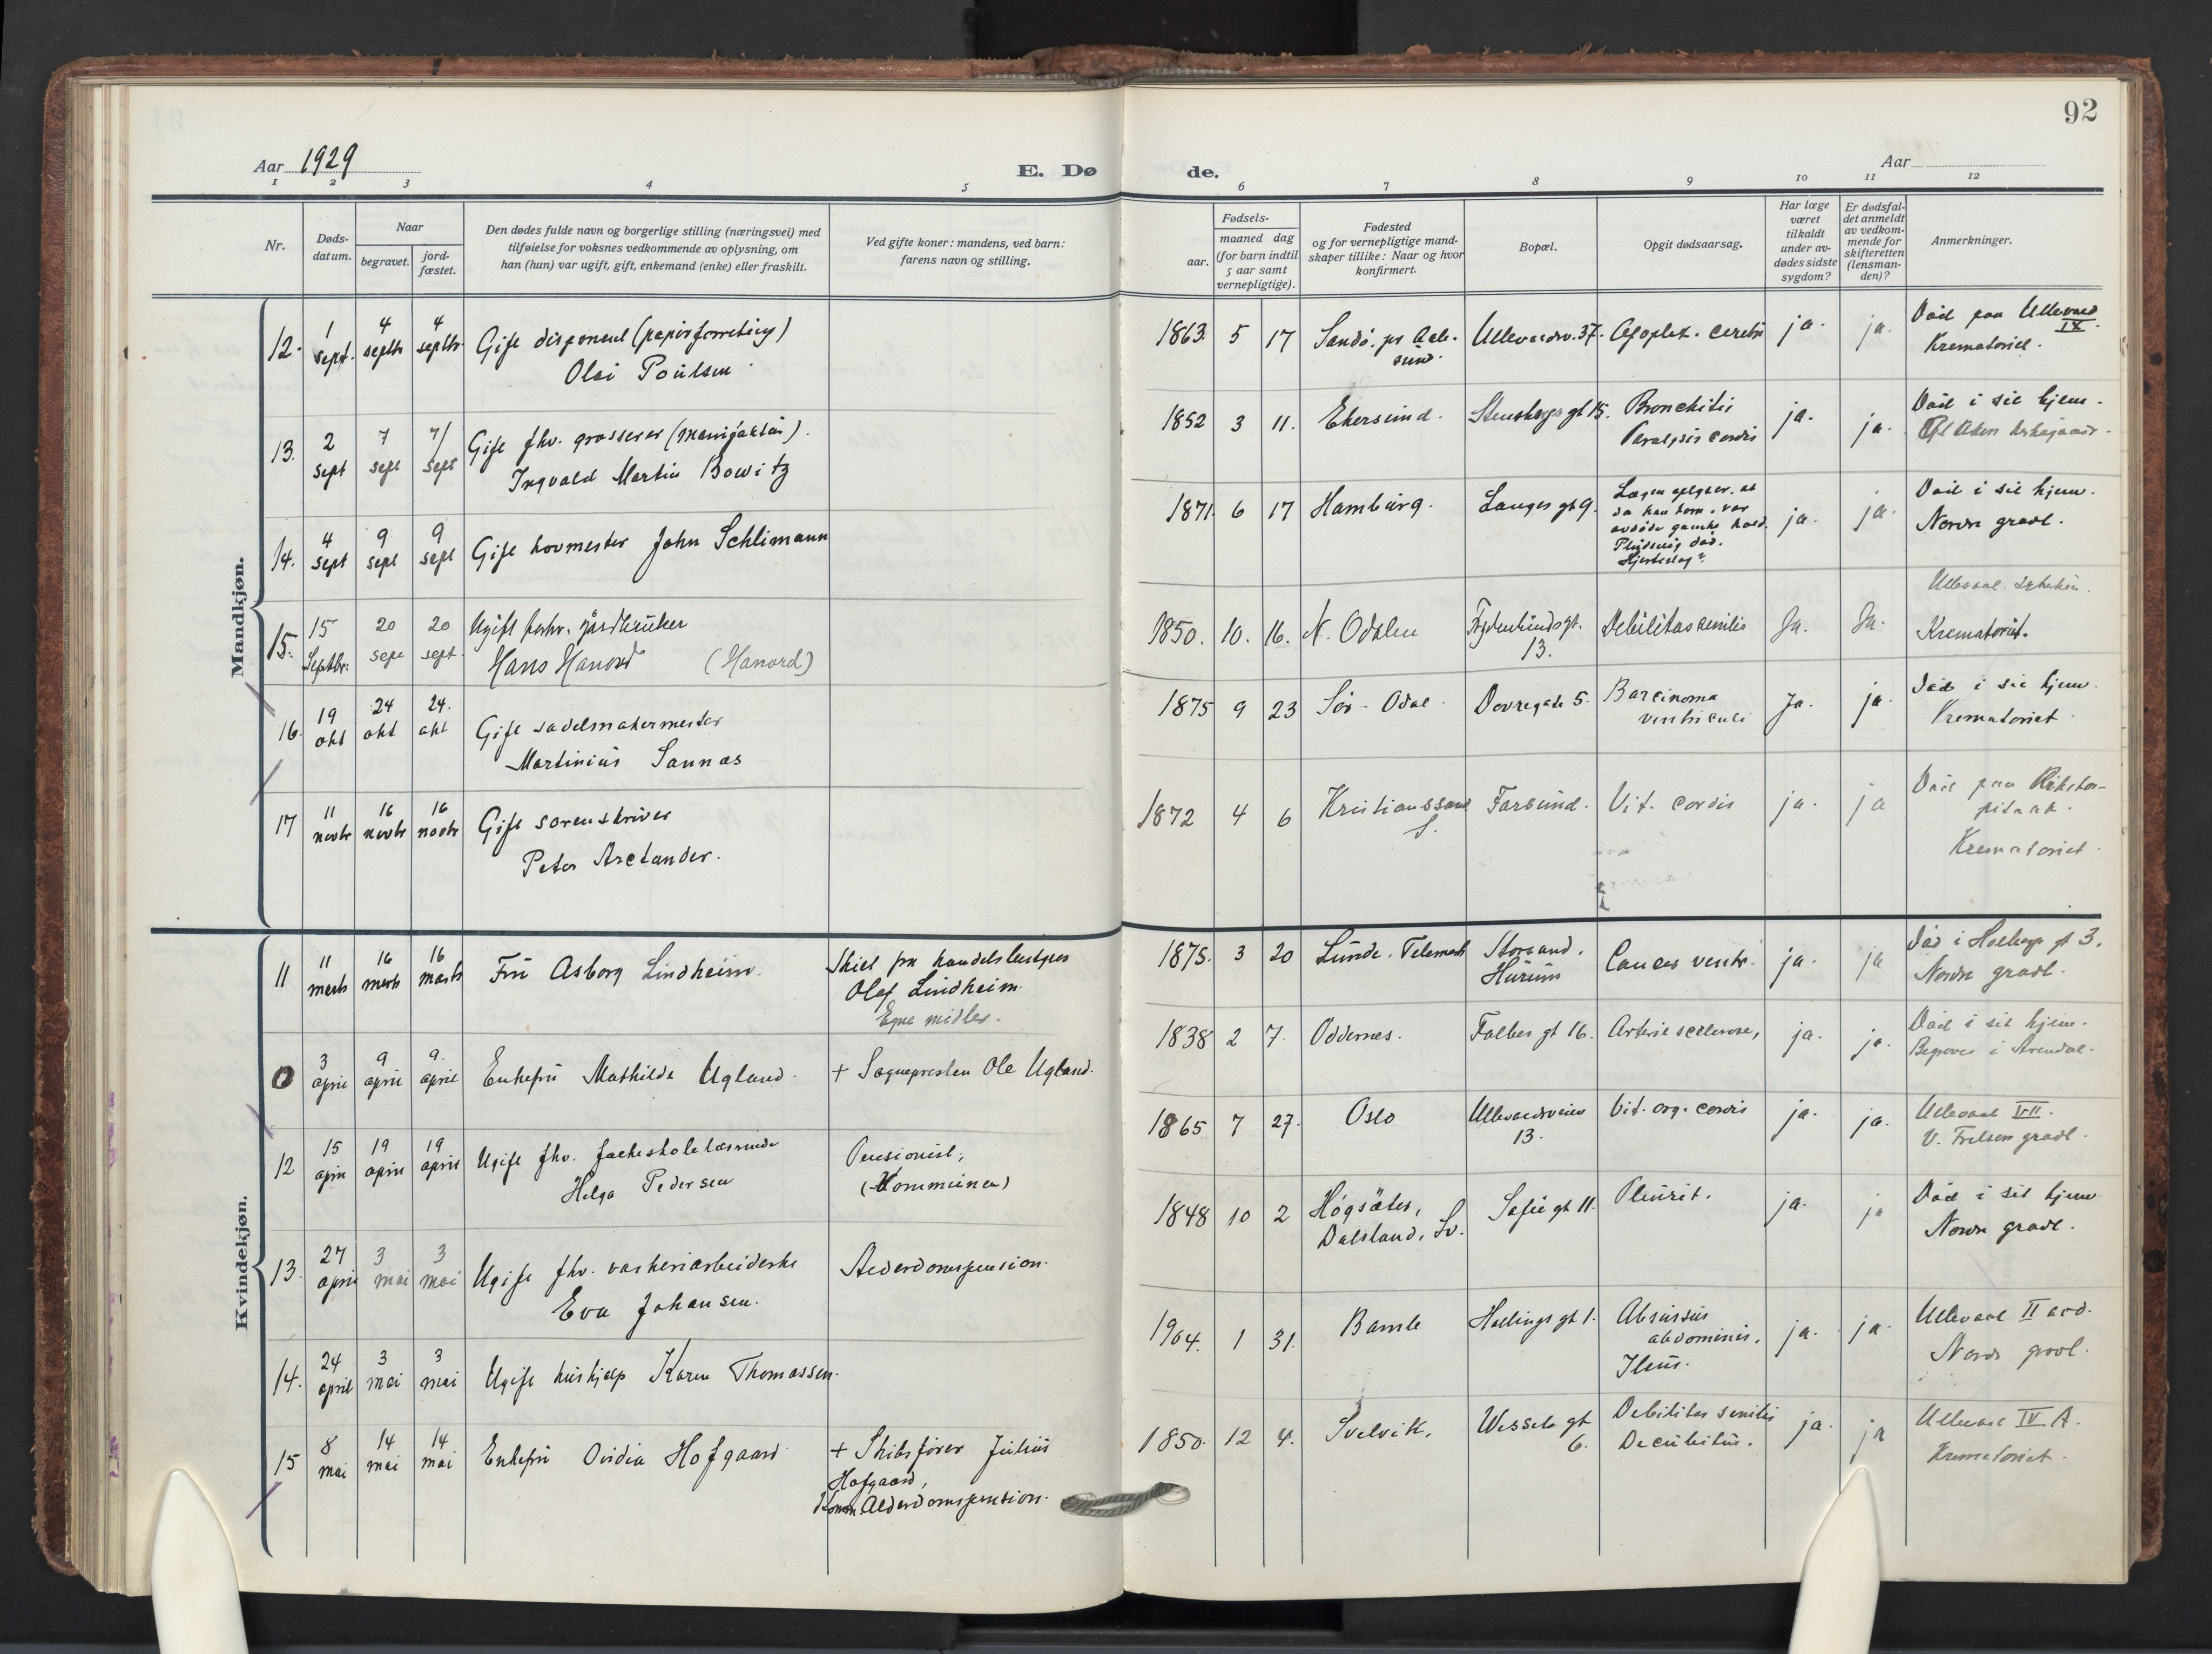 92
Aar 1929
E. Dø
de.
Aar
1 2 3 4 5 6 7 8 9 10 11 12
Nr.
Døds-
datum.
Naar
begravet.
jord-
fæstet.
Den dødes fulde navn og borgerlige stilling (næringsvei) med
tilføielse for voksnes vedkommende av oplysning, om
han (hun) var ugift, gift, enkemand (enke) eller fraskilt.
Ved gifte koner: mandens, ved barn:
farens navn og stilling.
Fødsels-
aar.
maaned dag
(for barn indtil
5 aar samt
vernepligtige).
Fødested
og for vernepligtige mand-
skaper tillike: Naar og hvor
konfirmert.
Bopæl.
Opgit dødsaarsag.
Har læge
været
tilkaldt
under av-
dødes sidste
sygdom?
Er dødsfal-
det anmeldt
av vedkom-
mende for
skifteretten
(lensman-
den)?
Anmerkninger.
Mandkjøn.
12. 1 sept. 4 septbr 4 septbr. Gift disponent (papirforretning)
Olai Poulsen
1863. 5 17 Sandö, pr Aale-
sund. Ullevaalsv. 37. Apoplex. cerebri ja. ja. Död paa Ullevaal
IX.
Krematoriet.
13. 2 sept 7 sept 7/ sept Gift fhv. grosserer (manufaktur).
Ingvald Martin Bowitz
1852 3 11. Ekersund. Stensberg gt 15. Bronchitis
Paralysis cordis ja. ja. Död i sit hjem.
Gl Aker
14. 4 sept 9 sept 9 sept Gift hovmester John Schlimann
1871. 6 17 Hamburg. Langes gt 9. Lægen oplyser, at
da han kom, var
avdöde ganske kold.
Pludselig död.
Hjerteslag? ja. ja. Död i sit hjem.
Nordre gravl.
15. 15 Septbr. 20 sept 20 sept. Ugift forhv. gårdbruker
Hans Hanord (Hanord)
1850. 10. 16. N. Odalen Frydenlundsgt.
13. Debilitas senilis Ja. Ja. Ullevaal
Krematoriet.
16. 19 okt 24 okt 24. okt Gift sadelmakermester
Martinius Sannæs
1875 9 23 Sör-Odal. Dovregate 5. Carcinoma
ventriculi Ja. ja. Död i sit hjem
Krematoriet
17 11 novbr 16 novbr 16 novbr Gift sorenskriver
Peter Arctander.
1872 4 6 Kristianssand
S. Farsund. Vit. cordis ja. ja Död paa Rikshos-
pitalet.
Krematoriet.
Kvindekjøn.
11 11 marts 16 marts 16 marts Fru Asborg Lindheim. Skilt fra handelsbestyrer
Olaf Lindheim.
Egne midler.
1875. 3 20 Lunde. Telemark Storsand.
Hurum Cancer ventr. ja. ja Död i Holbergs gt 3.
Nordre gravl.
0 3 april 9 april 9. april Enkefru Mathilde Ugland. + Sognepresten Ole Ugland.
1838 2 7. Oddernes. Falbes gt 16. Arterie sclerose, ja. ja. Död i sit hjem.
Begraves i Arendal.
12 15 april 19 april 19 april Ugift fhv. folkeskolelærerinde
Helga Pedersen Pensionist,
(Kommunen)
1865 7 27. Oslo Ullevaalsveien
13. Vit. org. cordis ja. ja. Ullevaal VII.
V. Frelsers gravl.
13. 27 april 3 mai 3 mai Ugift fhv. vaskeriarbeiderske
Eva Johansen. Alderdomspension.
1848 10 2 Högsäter,
Dalsland, Sv. Sofie gt 11. Pleurit. ja. ja Död i sit hjem
Nordre gravl.
14. 24 april 3 mai 3 mai Ugift hushjælp Karen Thomassen.
1904. 1 31. Bamle Hallings gt 1. Abscessus
abdominis.
Ileus. ja. ja. Ullevaal II avd.
Nordre gravl.
15 8 mai 14 mai 14 mai Enkefru Ovidia Hofgaard + Skibsförer Julius
Hofgaard,
Komm. Alderdomspension.
1850. 12 4. Svelvik. Wessels gt
6. Debilitas senilis
Decubitus. ja. ja Ullevaal IV. A.
Krematoriet.